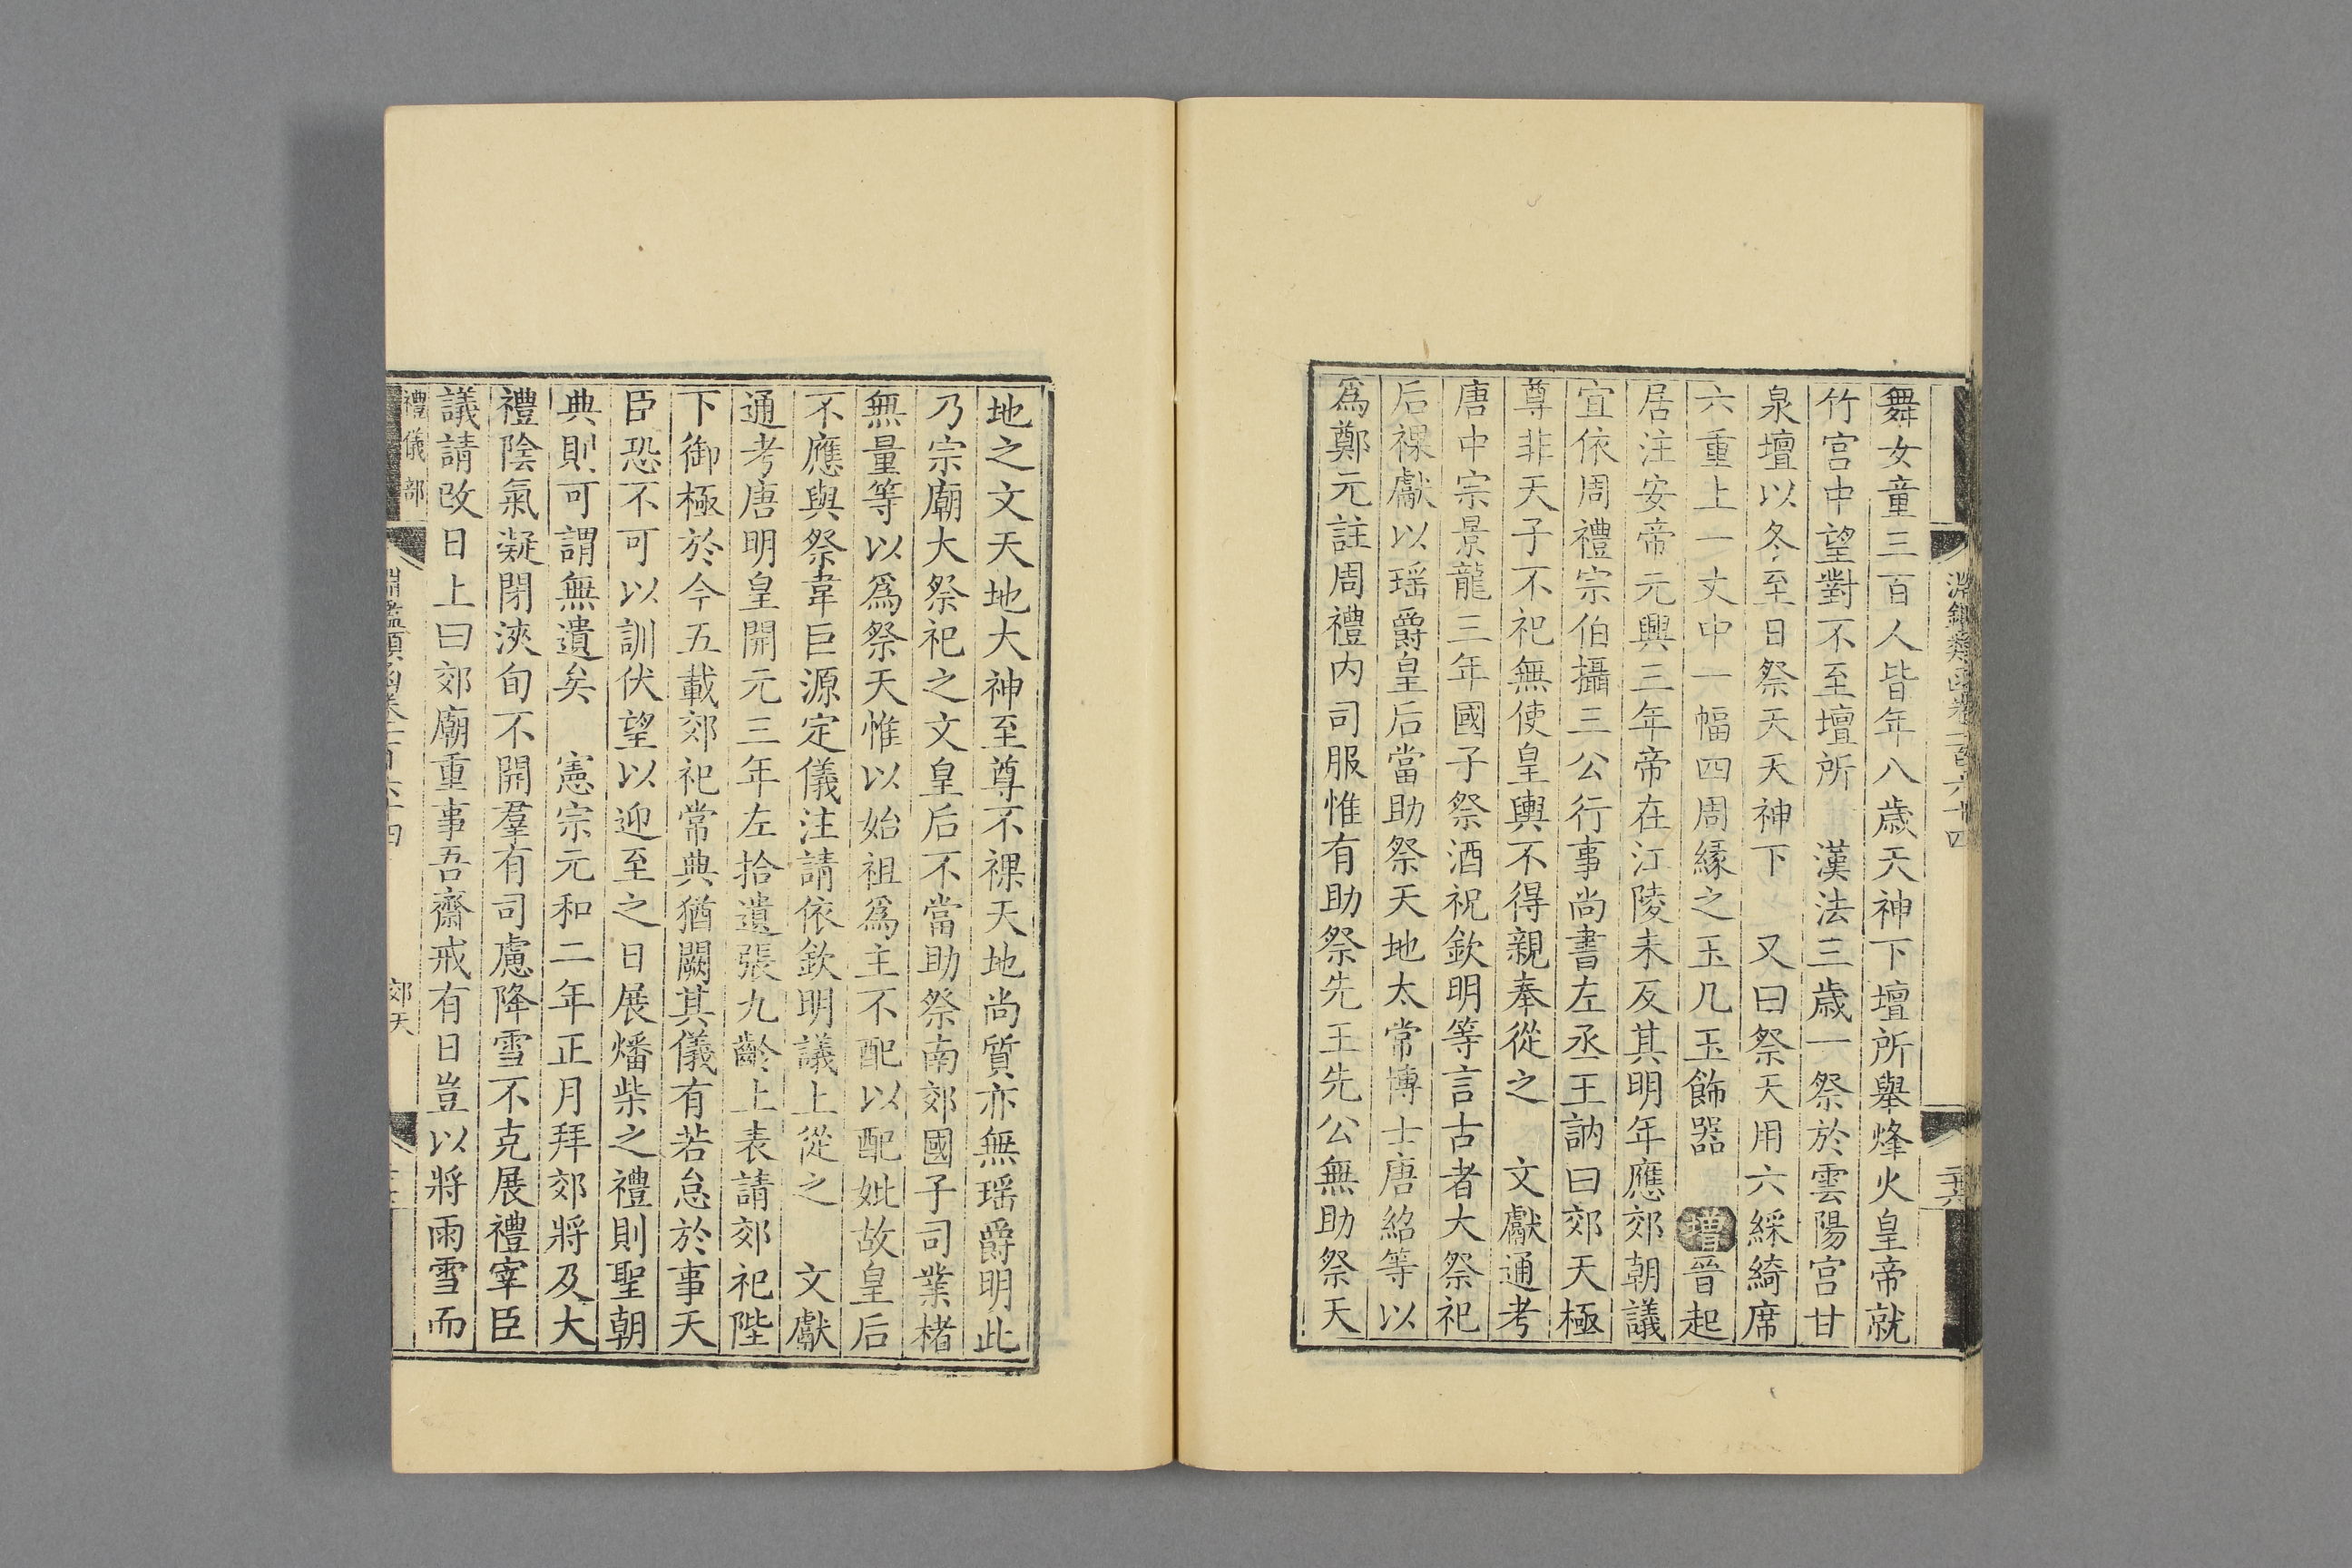 淵鑑類函卷一百六十四
二十六
舞女童三百人皆年八歲天神下壇所舉烽火皇帝就
竹宮中望對不至壇所　漢法三歲一祭於雲陽宮甘
泉壇以冬至日祭天天神下　又曰祭天用六綵綺席
六重上一丈中一幅四周緣之玉几玉飾器　增晉起
居注安帝元興三年帝在江陵未反其明年應郊朝議
宜依周禮宗伯攝三公行事尚書左丞王訥曰郊天極
尊非天子不祀無使皇輿不得親奉從之　文獻通考
唐中宗景龍三年國子祭酒祝欽明等言古者大祭祀
后祼獻以瑤爵皇后當助祭天地太常博士唐紹等以
爲鄭元註周禮內司服惟有助祭先王先公無助祭天
地之文天地大神至尊不祼天地尚質亦無瑤爵明此
乃宗廟大祭祀之文皇后不當助祭南郊國子司業楮
無量等以爲祭天惟以始祖爲主不配以配妣故皇后
不應與祭韋巨源定儀注請依欽明議上從之　文獻
通考唐明皇開元三年左拾遺張九齡上表請郊祀陛
下御極於今五載郊祀常典猶闕其儀有若怠於事天
臣恐不可以訓伏望以迎至之日展燔柴之禮則聖朝
典則可謂無遺矣　憲宗元和二年正月拜郊將及大
禮陰氣凝閉浹旬不開羣有司慮降雪不克展禮宰臣
議請改日上曰郊廟重事吾齋戒有日豈以將雨雪而
禮儀部
淵鑑類函卷一百六十四
郊天